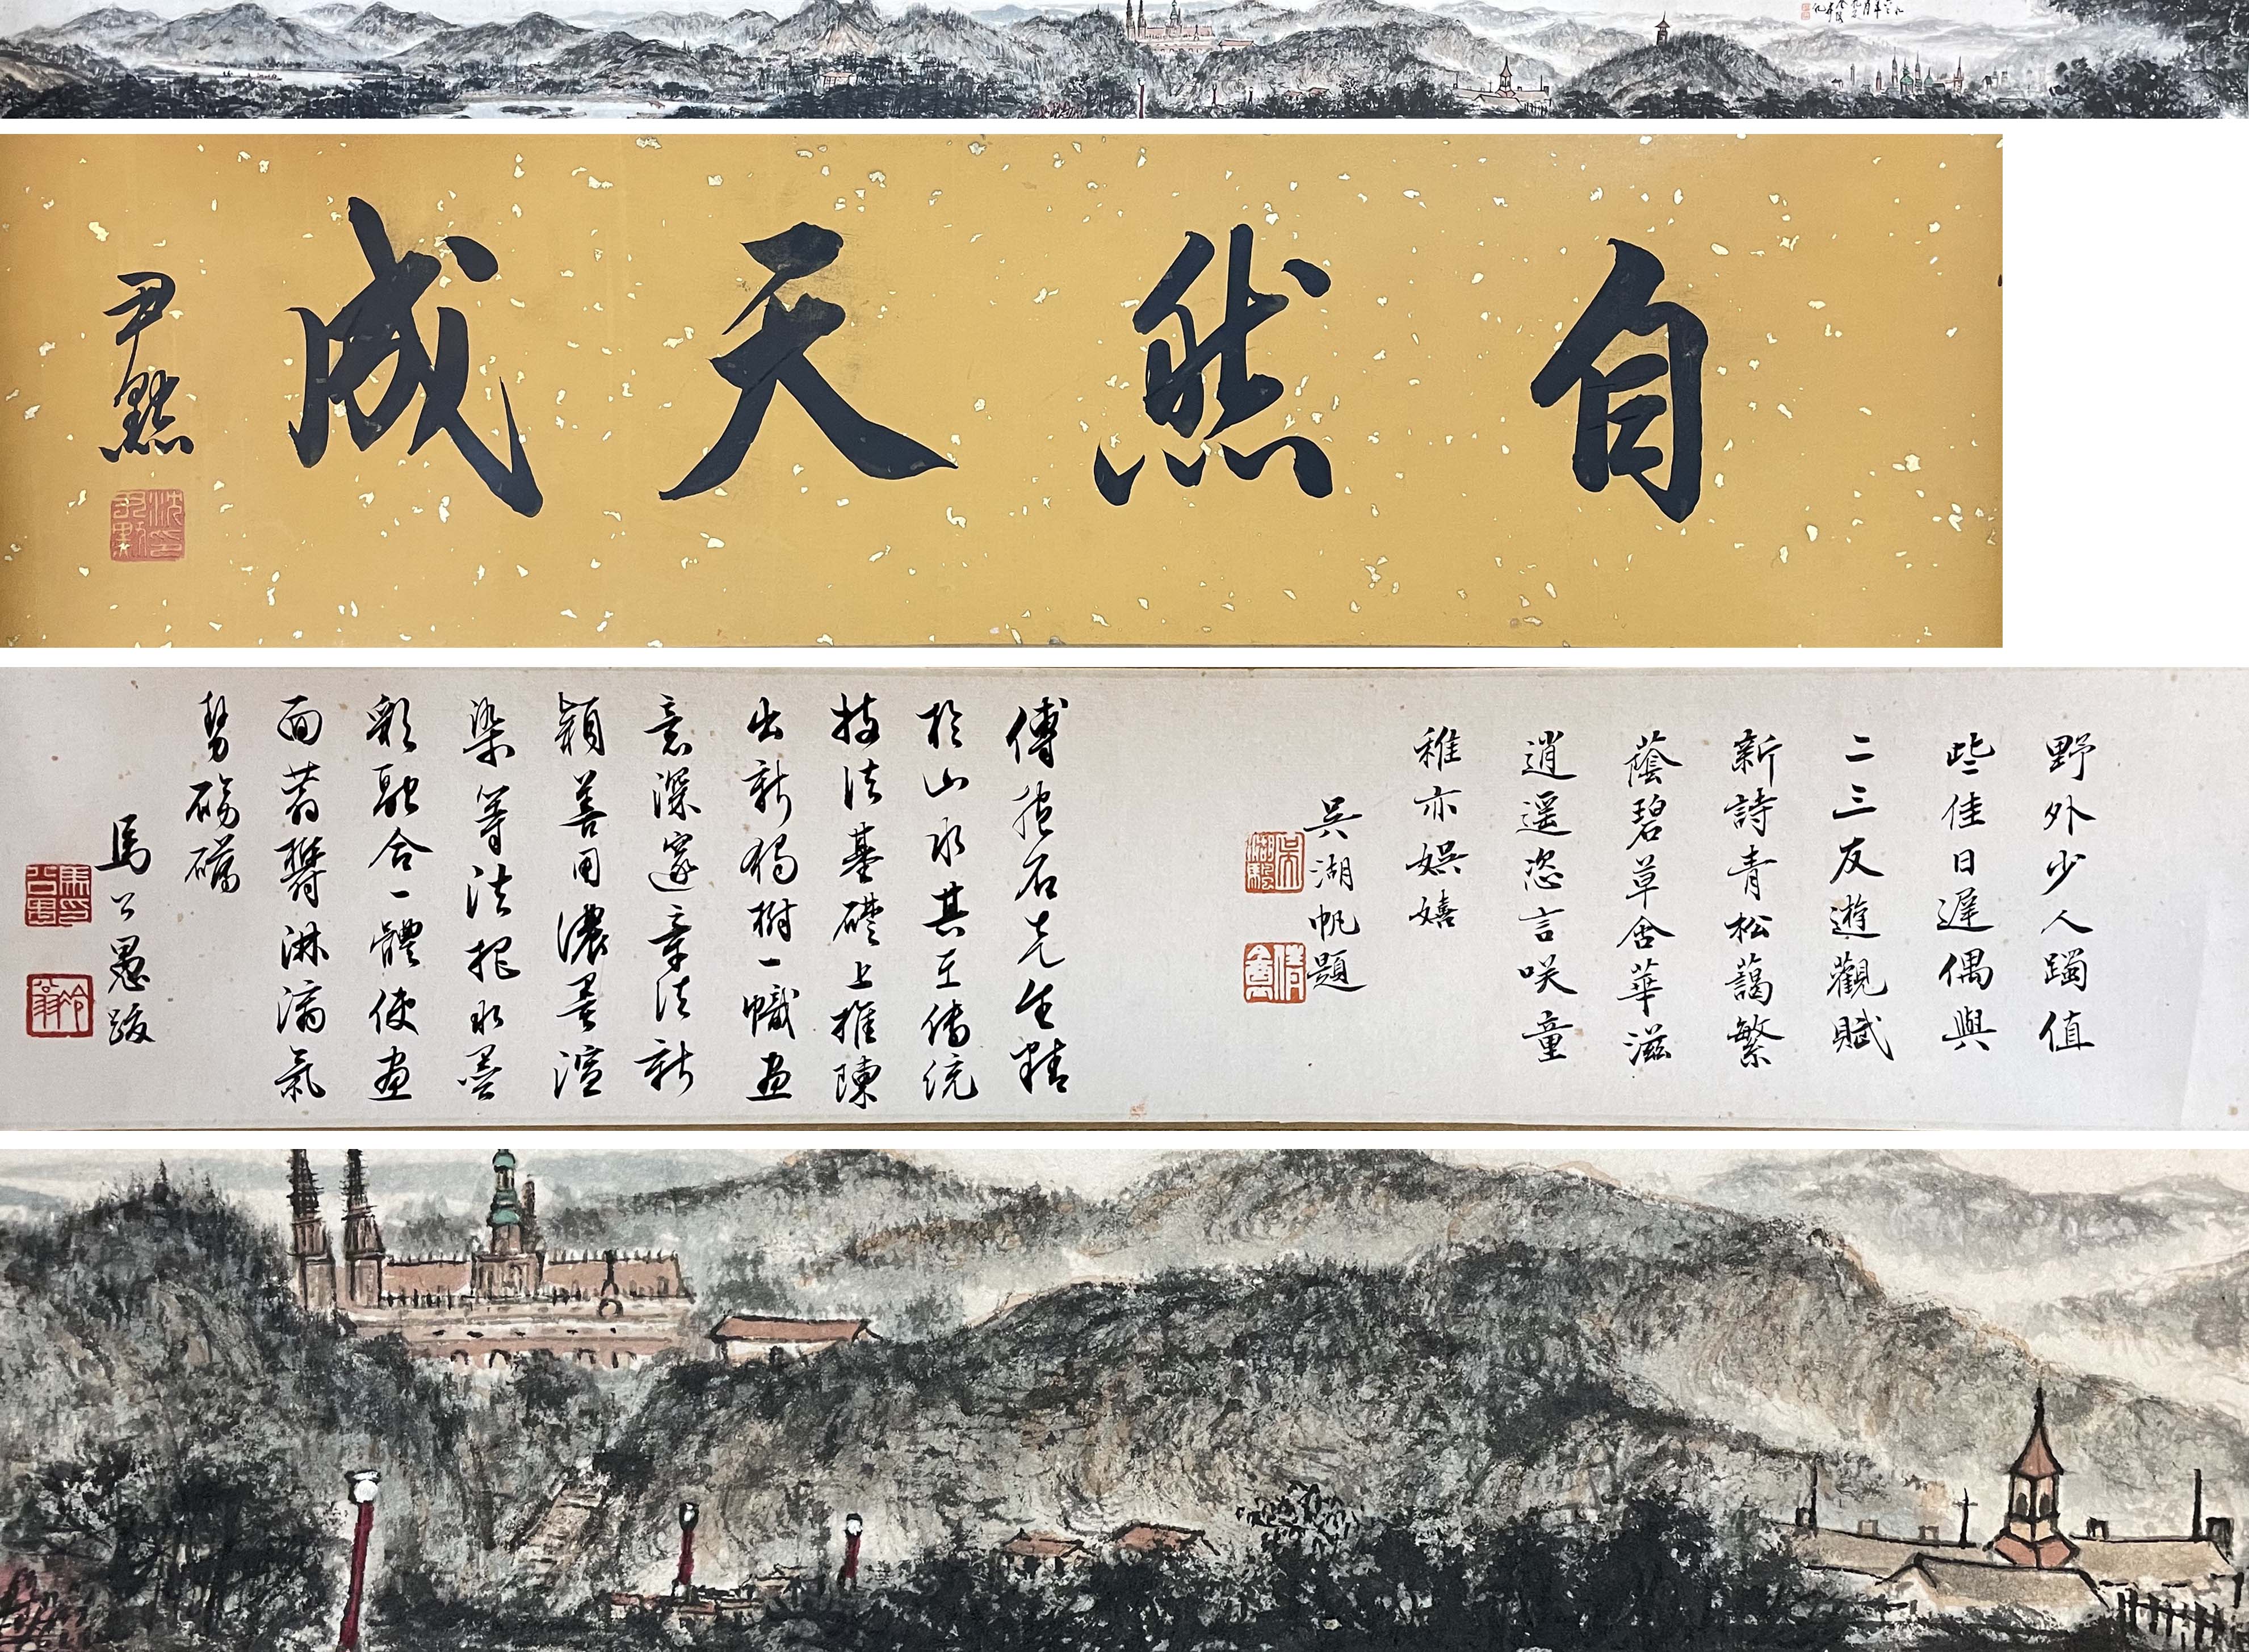 自然天成
尹默
野外少人躅值
些佳日遲偶與
二三友遊觀賦
新詩青松蔼繁
蔭碧草含華滋
逍遥恣言咲童
稚亦娛嬉
吳湖帆題
傅抱石先生精
於山水其在傳統
技法基礎上推陳
出新獨樹一幟畫
意深邃章法新
穎善用濃墨渲
染等法把水墨
彩融合一體使畫
面蒼鬱淋漓氣
勢磅礴
馬公愚跋